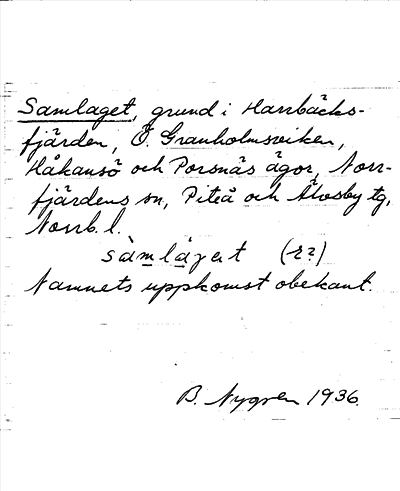 Samlaget, grund i Harrbäcks-
fjärden, Ö. Granholmsviken,
Håkansö och Porsnäs ägor, Norr-
fjärdens sn, Piteå och Älvsby tg,
Norrb. l.
sàmlàgεt (r?)
Namnets uppkomst obekant.
B. Nygren 1936.